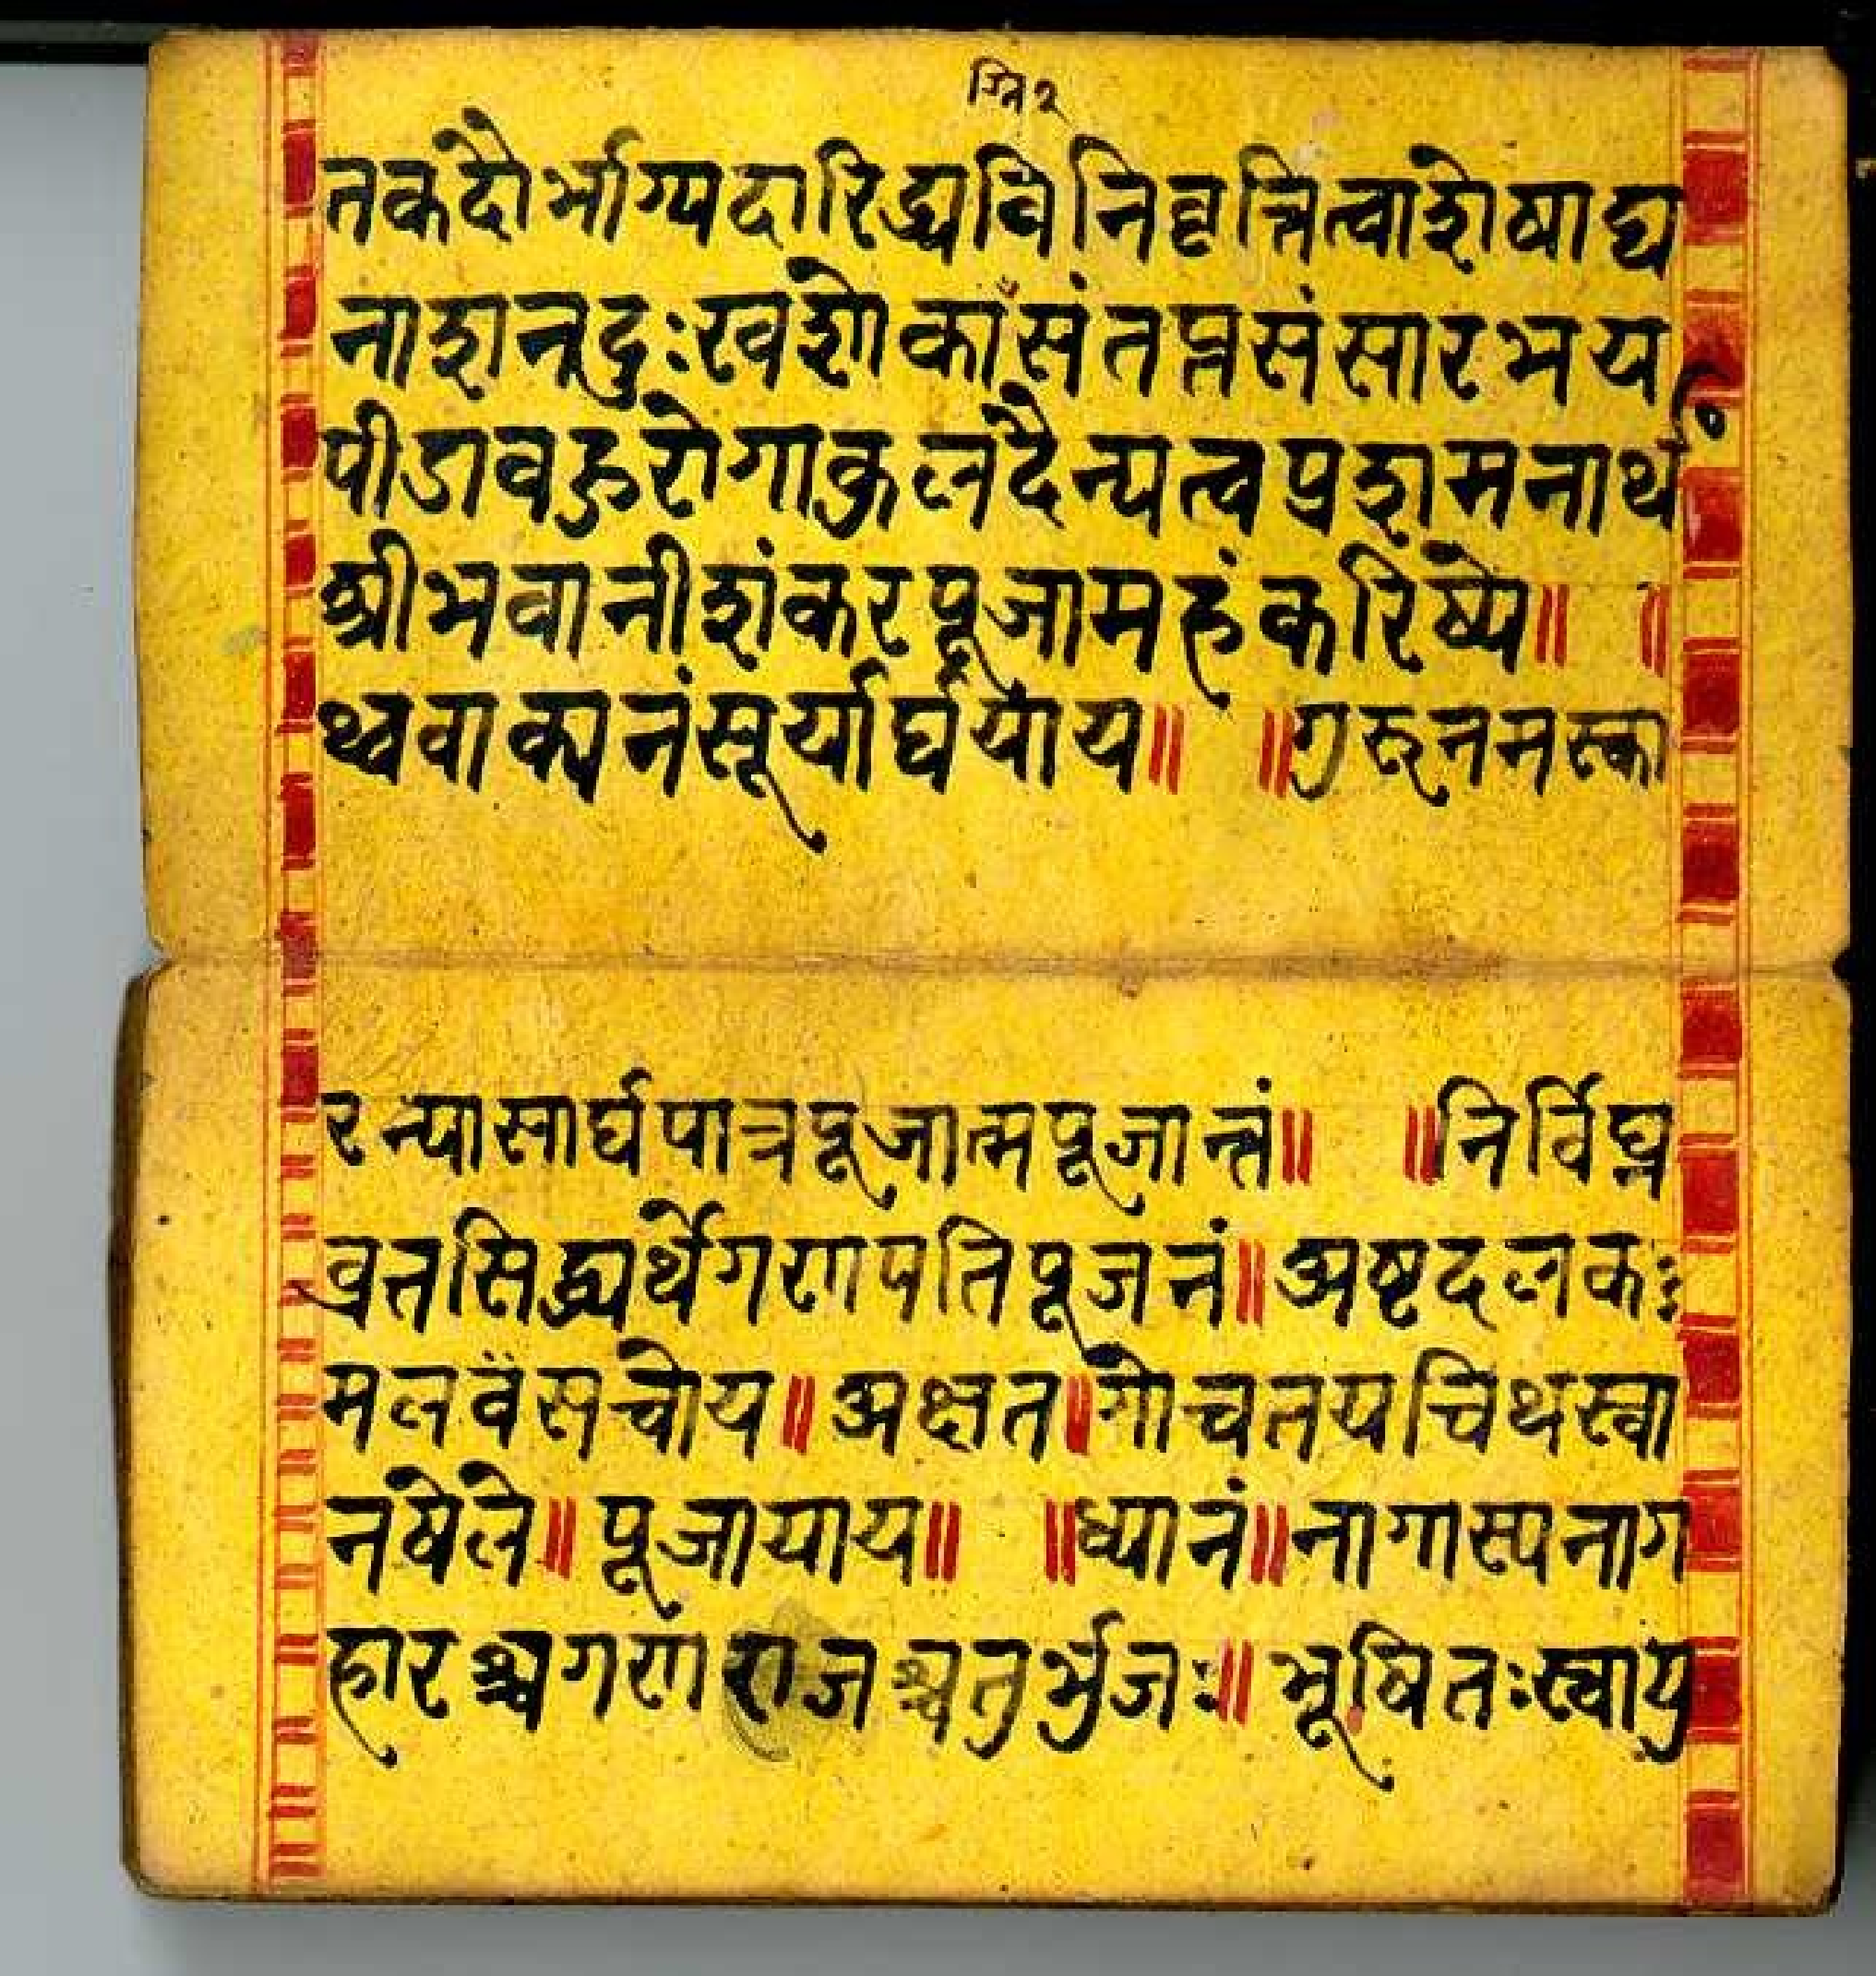 तकदौर्भाग्यदारिद्र्यविनिवृत्तित्वाशेषाघ
नाशनदुःखशोकाँसंतप्तसंसारभय
पीडावहुरोगाकुलदैन्यत्वप्रशमनार्थं
श्रीभवानीशंकरपूजामहंकरिष्ये॥ ॥
थ्ववाक्यनंसूर्यार्घयाय॥ ॥गुरूनमस्का
रन्यासार्घपात्रपूजात्मपूजान्तं॥ ॥निर्विघ्न
व्रतसिद्ध्यर्थेगणपतिपूजनं॥अष्टदलकः
मलवँसचोय॥अक्षत॥गोचतयचिथस्वा
नषेले॥पूजायाय॥ ॥ध्यानं॥नागास्यनाग
हारश्चगणराजश्चतुर्भुजः॥भूषितःस्वायु